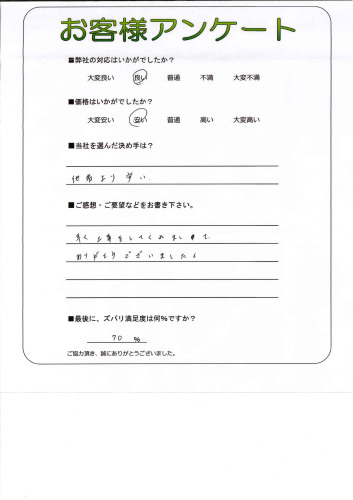 お客様アンケート
■弊社の対応はいかがでしたか？
大変良い　良い　普通　不満　大変不満
■価格はいかがでしたか？
大変安い　安い　普通　高い　大変高い
■当社を選んだ決め手は？
他者より安い
■ご感想・ご要望などをお書き下さい。
早く工事をしてくれまして
ありがとうございました。
■最後に、ズバリ満足度は何%ですか？
70 %
ご協力頂き、誠にありがとうございました。